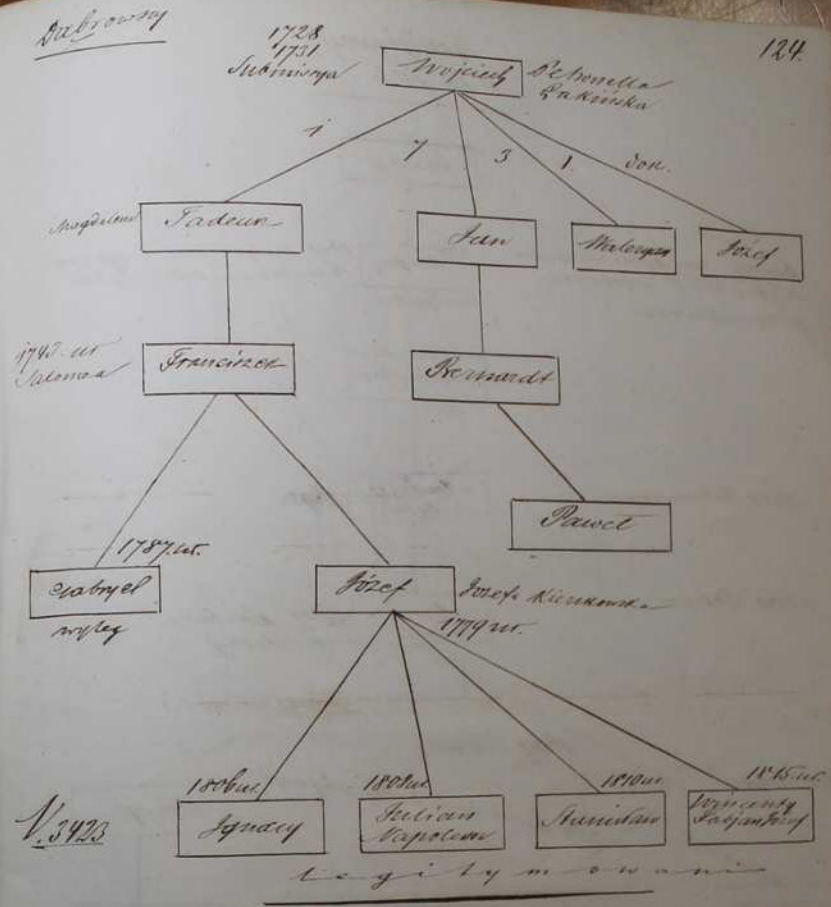 Dąbrowscy
124.
1728
1731
Submissya
Wojciech
Petronella
Łakińska
1
7
3
1.
Son.
Magdalena
Tadeusz
Jan
Waleryan
Józef
1743. ur
Salomea
Franciszek
Bernardt
Paweł
1787. ur.
Gabryel
wyleg
Józef
Jozefa
1779 ur.
1806 ur.
1808 ur.
1810 ur.
1815. ur.
V. 3423
Ignacy
Julian
Napoleon
Stanisław
Wincenty
Fabjan Józef
Legitymowani